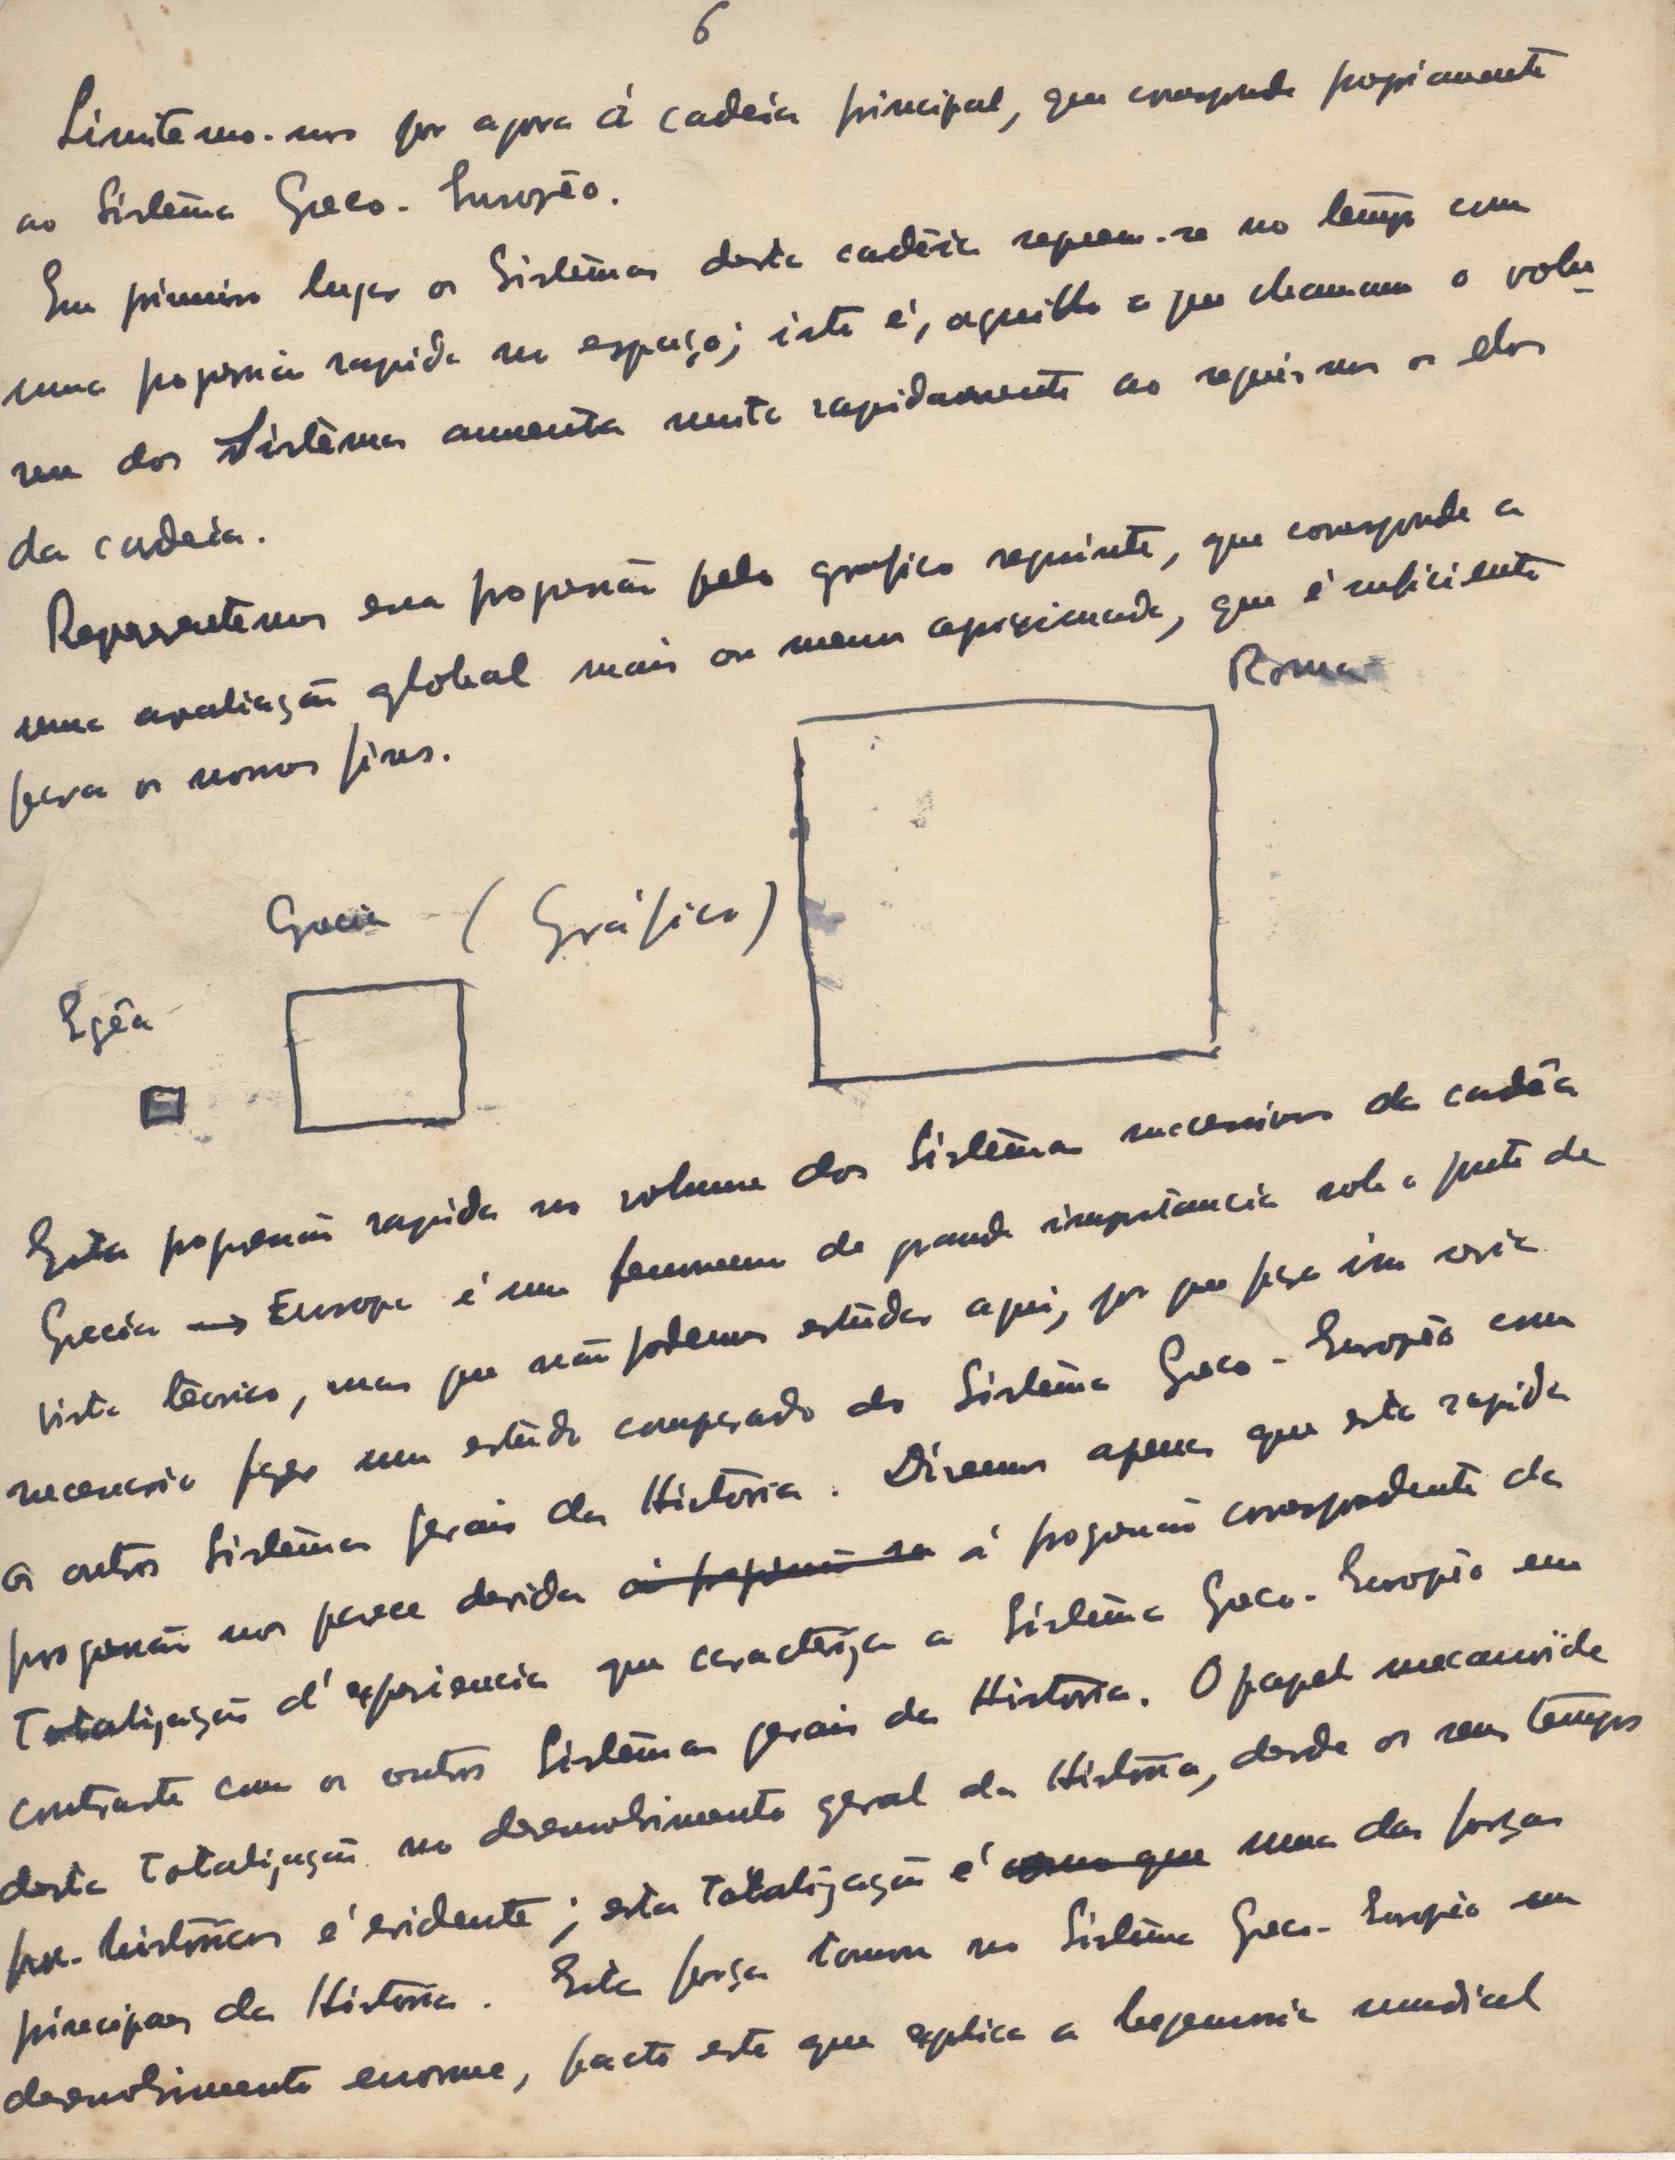 6
Limitemo-nos por agora á cadeia principal, que corresponde propriamente
ao Sistêma Greco-Europêo.
Em primeiro lugar os Sistêmas desta cadêia seguem-se no tempo com
uma progressão rapida no espaço; isto é, aquillo a que chamam o volu
me dos Sistêmas aumenta muito rapidamente ao seguirmos os elos
da cadeia.
Representemos essa progressão pelo grafico seguinte, que corresponde a
uma avaliação global mais ou menos aproximada, que é suficiente
para os nossos fins.
Roma
Grecia (Gráfico)
Egêa
Esta progressão rapida no volume dos Sistêmas sucessivos da cadêa
Grecia → Europa é um fenomeno de grande importancia sob o ponto de
vista têorico, mas que não podemos estudar aqui, por que para isso seria
necessario fazer um estudo comparado do Sistêma Greco-Europêo com
os outros Sistêmas gerais da Historia. Diremos apenas que esta rapida
progressão nos parece devida á progressão sa á progressão correspondente da
Totalização d'experiencia que caracteriza o Sistêma Greco-Europêo em
contraste com os outros Sistêmas gerais da Historia. O papel
desta Totalização no desenvolvimento geral da Historia, desde os seus tempos
pre-historicos é evidente; esta Totalização é como que uma das forças
principaes da Historia. Esta força tomou no Sistêma Greco-Europêo um
desenvolvimento enorme, facto este que explica a hegemonia mundial